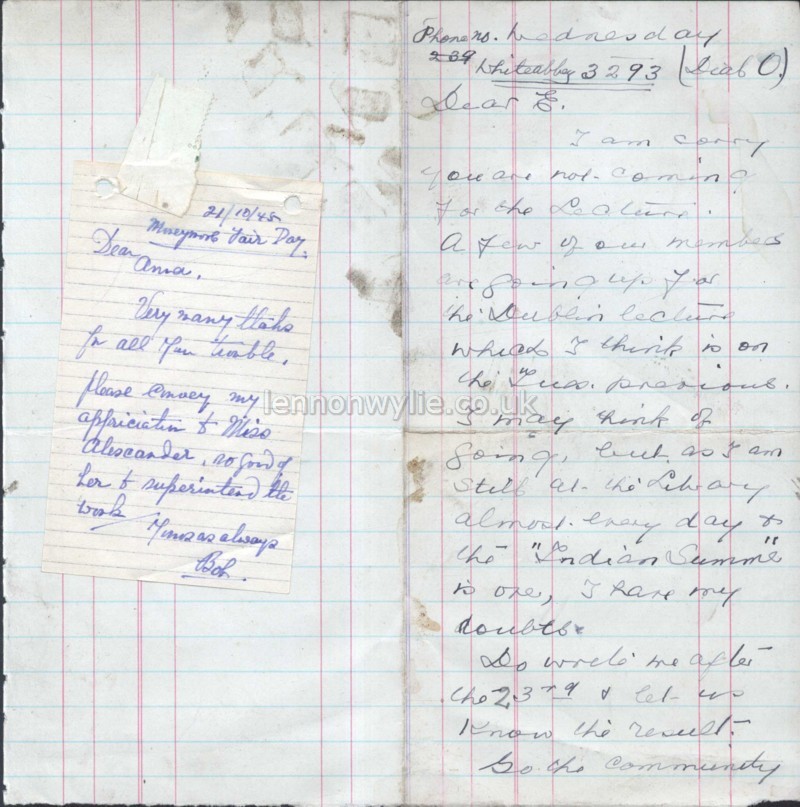 21/10/45
Moneymore Fair Day.
Dear
Anna,
Very many thanks
for all your trouble.
Please convey my
appriciation to Miss
Alexcander, so good of
her to superintend the
work
Yours as always
Bob.
Phone no. Wednesday
239 Whiteabbey 3293 (Dial 0.)
Dear E.
I am sorry
you are not coming
for the Lecture.
A few of our members
are going up for
the Dublin lecture
which I think is on
the Tues. previous.
I may think of
going, but as I am
still at the Library
almost every day &
the "Indian Summer"
is over, I have my
doubts.
Do write me after
the 23rd & let us
know the result.
So the community
lennonwylie.co.uk